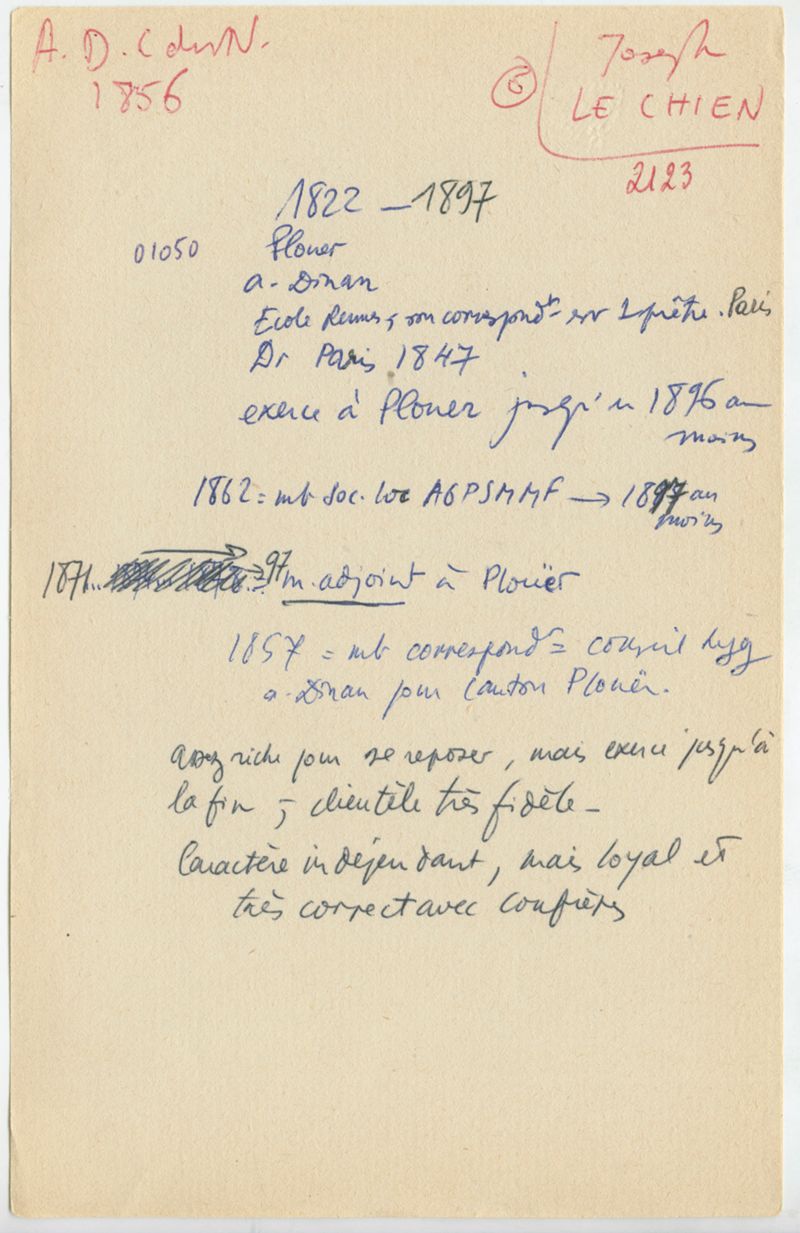 A. D. C du N.
1856
⑤ Joseph
LE CHIEN
2123
1822 - 1897
01050 Plouer
a. Dinan
Ecole Rennes ; son correspondt est 1 prêtre. Paris
Dr Paris 1847
exerce à Plouer jusqu'en 1896 au
moins
1862 = mb Soc. loc AGPSMMF → 1897 au
moins
1871 → 97 m. adjoint à Plouër
1857 = mb correspondt = conseil hyg
a. Dinan pour Canton Plouër.
assez riche pour se reposer, mais exerce jusqu'à
la fin ; clientèle très fidèle -
Caractère indépendant, mais loyal et
très correct avec confrères